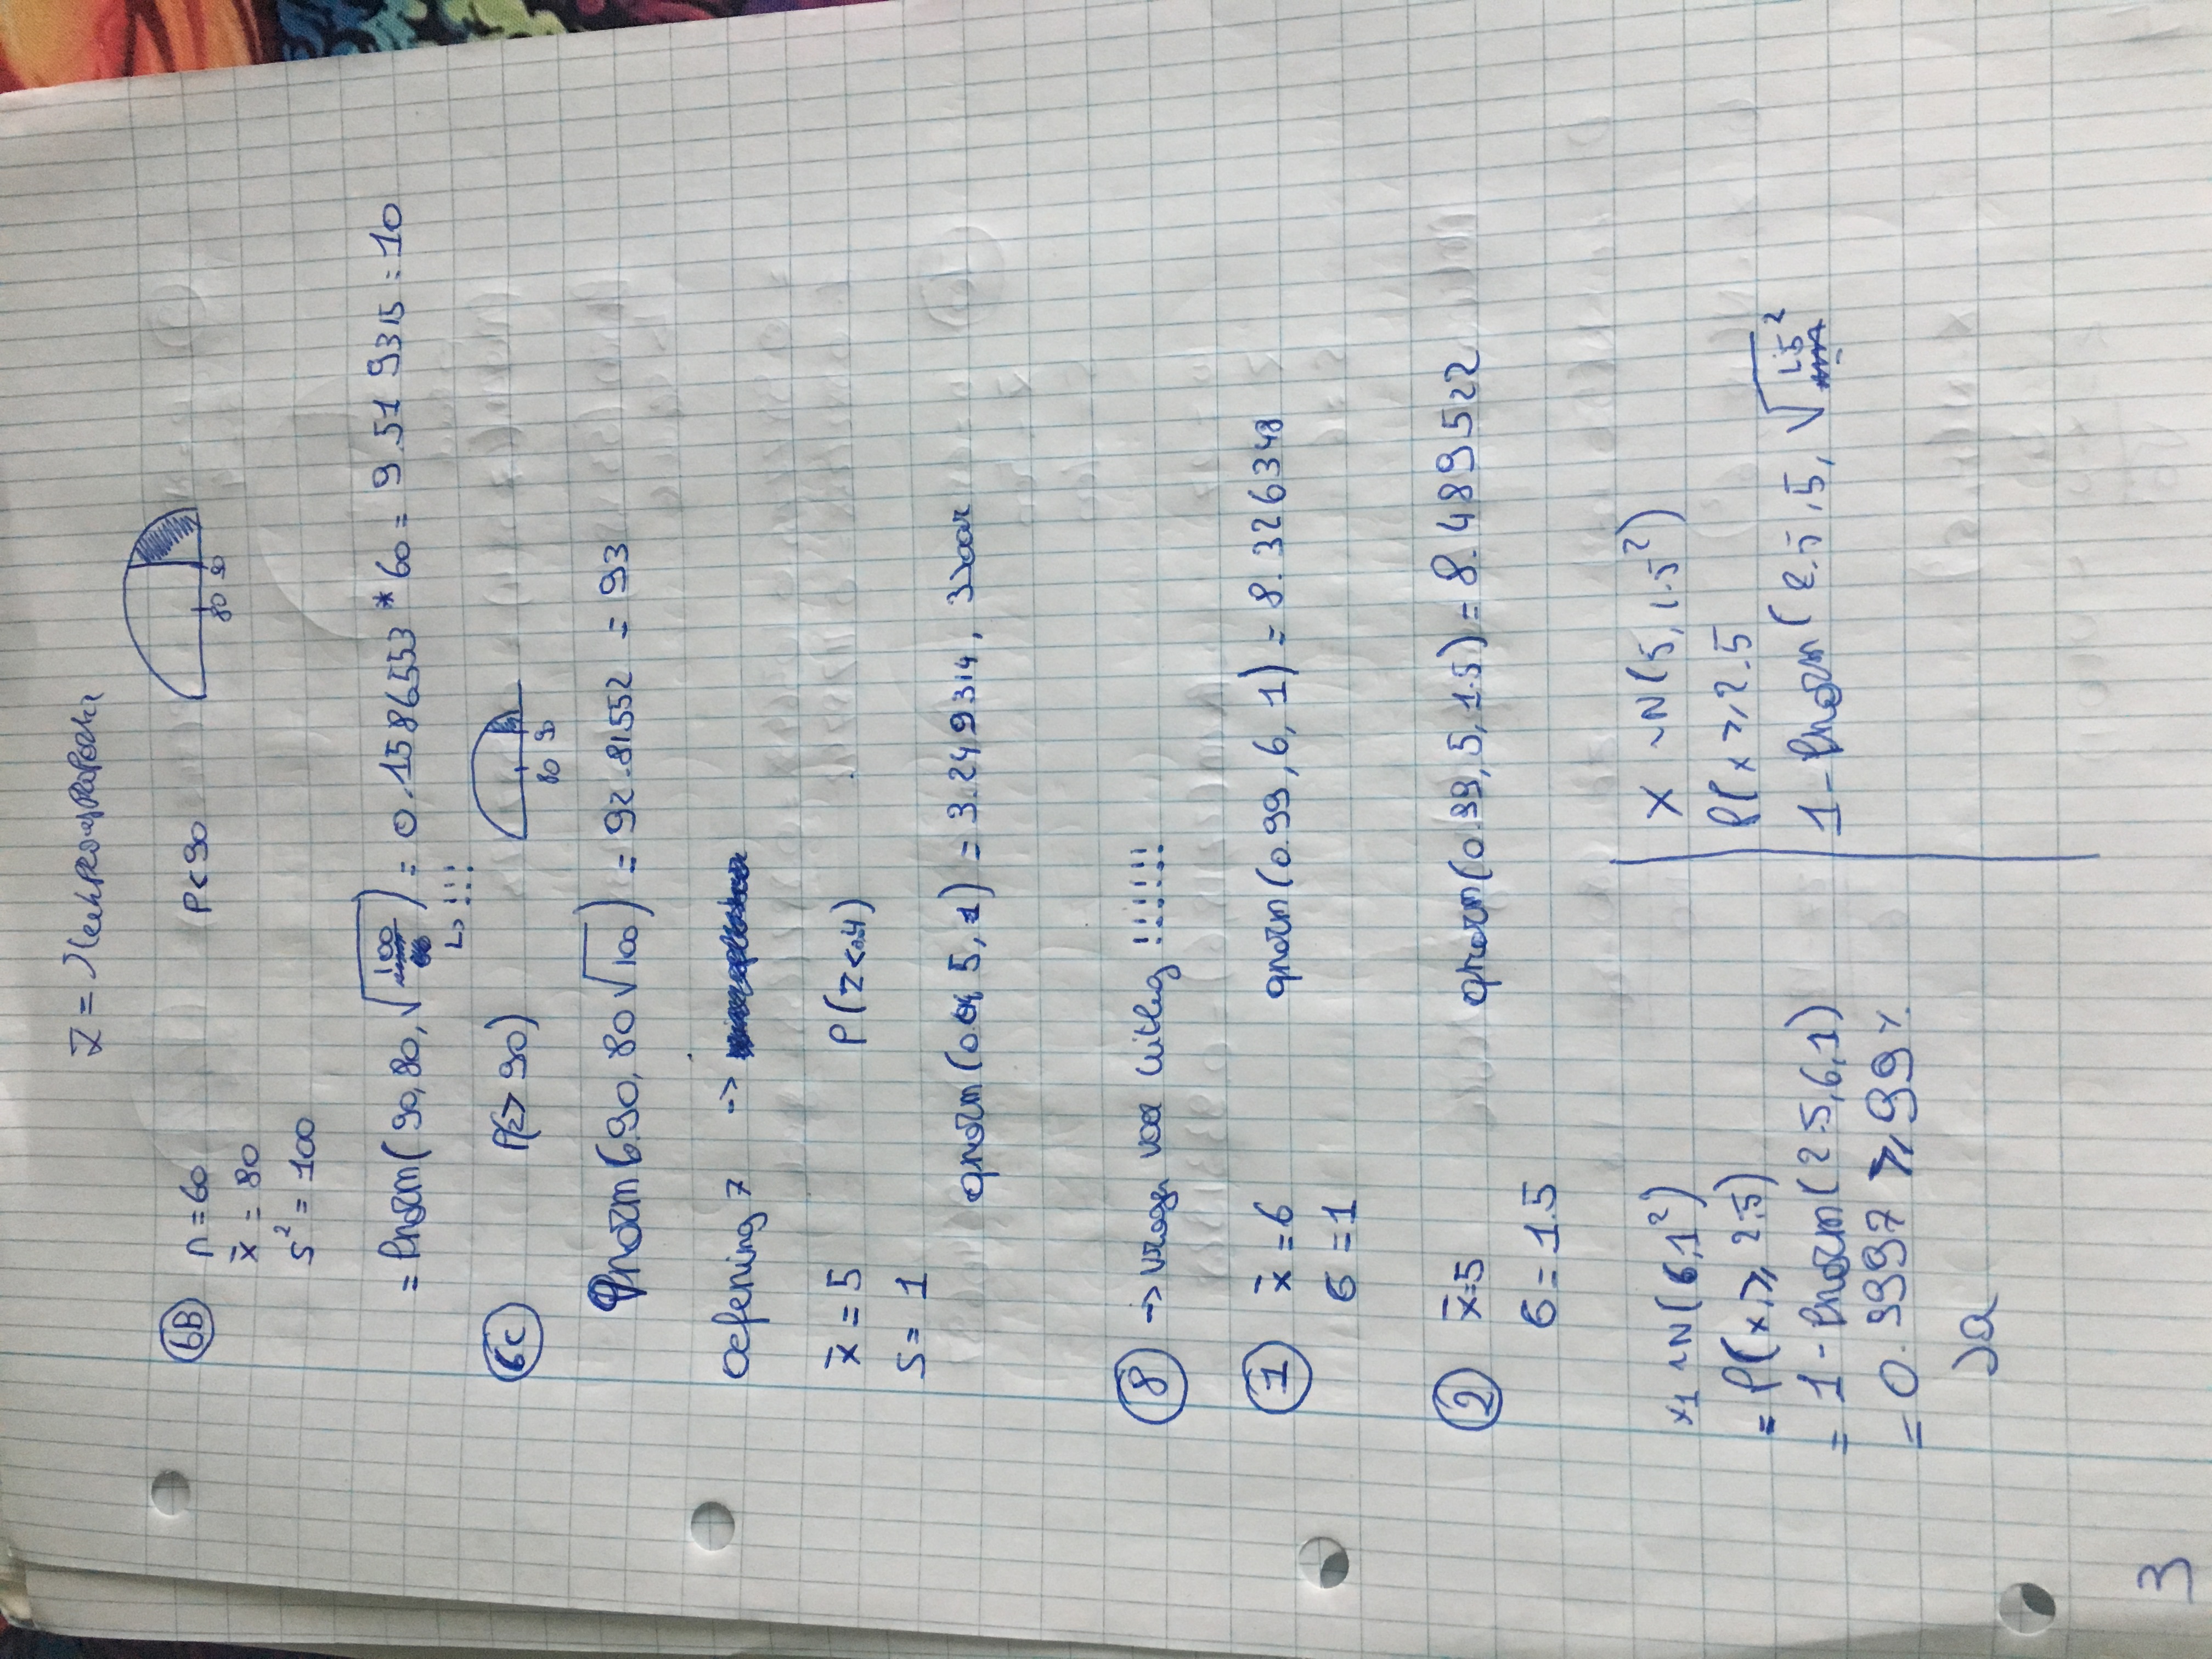 Z =
6B n = 60 P < 90
x̄ = 80
s² = 100
80 90
= Pnorm(90, 80, √100) = 0.1586553 * 60 = 9.519315 = 10
↳ !!!
6C P(z > 90)
80 90
qnorm(0.90, 80 √100) = 92.81552 = 93
Oefening 7 ->
x̄ = 5 P(Z<0.4)
S = 1
qnorm(0.04 5, 1) = 3.249314, 3Jaar
8 -> vragen voor uitleg !!!!!!
1 x̄ = 6 qnorm(0.99, 6, 1) = 8.326348
6 = 1
2 x̄=5 qnorm(0.99, 5, 1.5) = 8.489522
6 = 1.5
x1 ~N(6,1²)
= P(x, ≥ 2.5)
= 1 - Pnorm(2.5, 6, 1)
= 0.9997 ≥ 99%
Ja
X ~N(5, 1.5²)
P(x ≥ 2.5
1 - Pnorm(2.5, 5, √1.5²
3